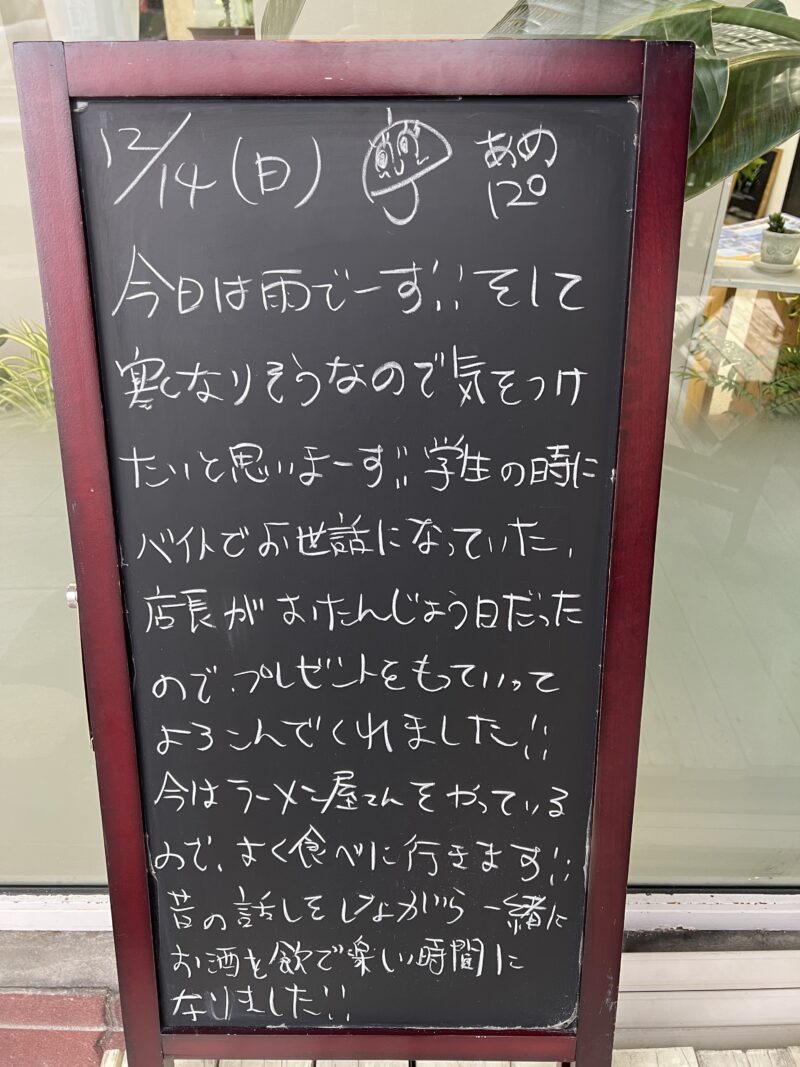 12/14(日) あめ
12°
今日は雨でーす!! そして
寒くなりそうなので気をつけ
たいと思いまーす!! 学生の時に
バイトでお世話になっていた、
店長がおたんじょう日だった
ので、プレゼントをもっていって
よろこんでくれました!!
今はラーメン屋さんをやっている
ので、よく食べに行きます!!
昔の話しをしながら一緒に
お酒を飲で楽しい時間に
なりました!!